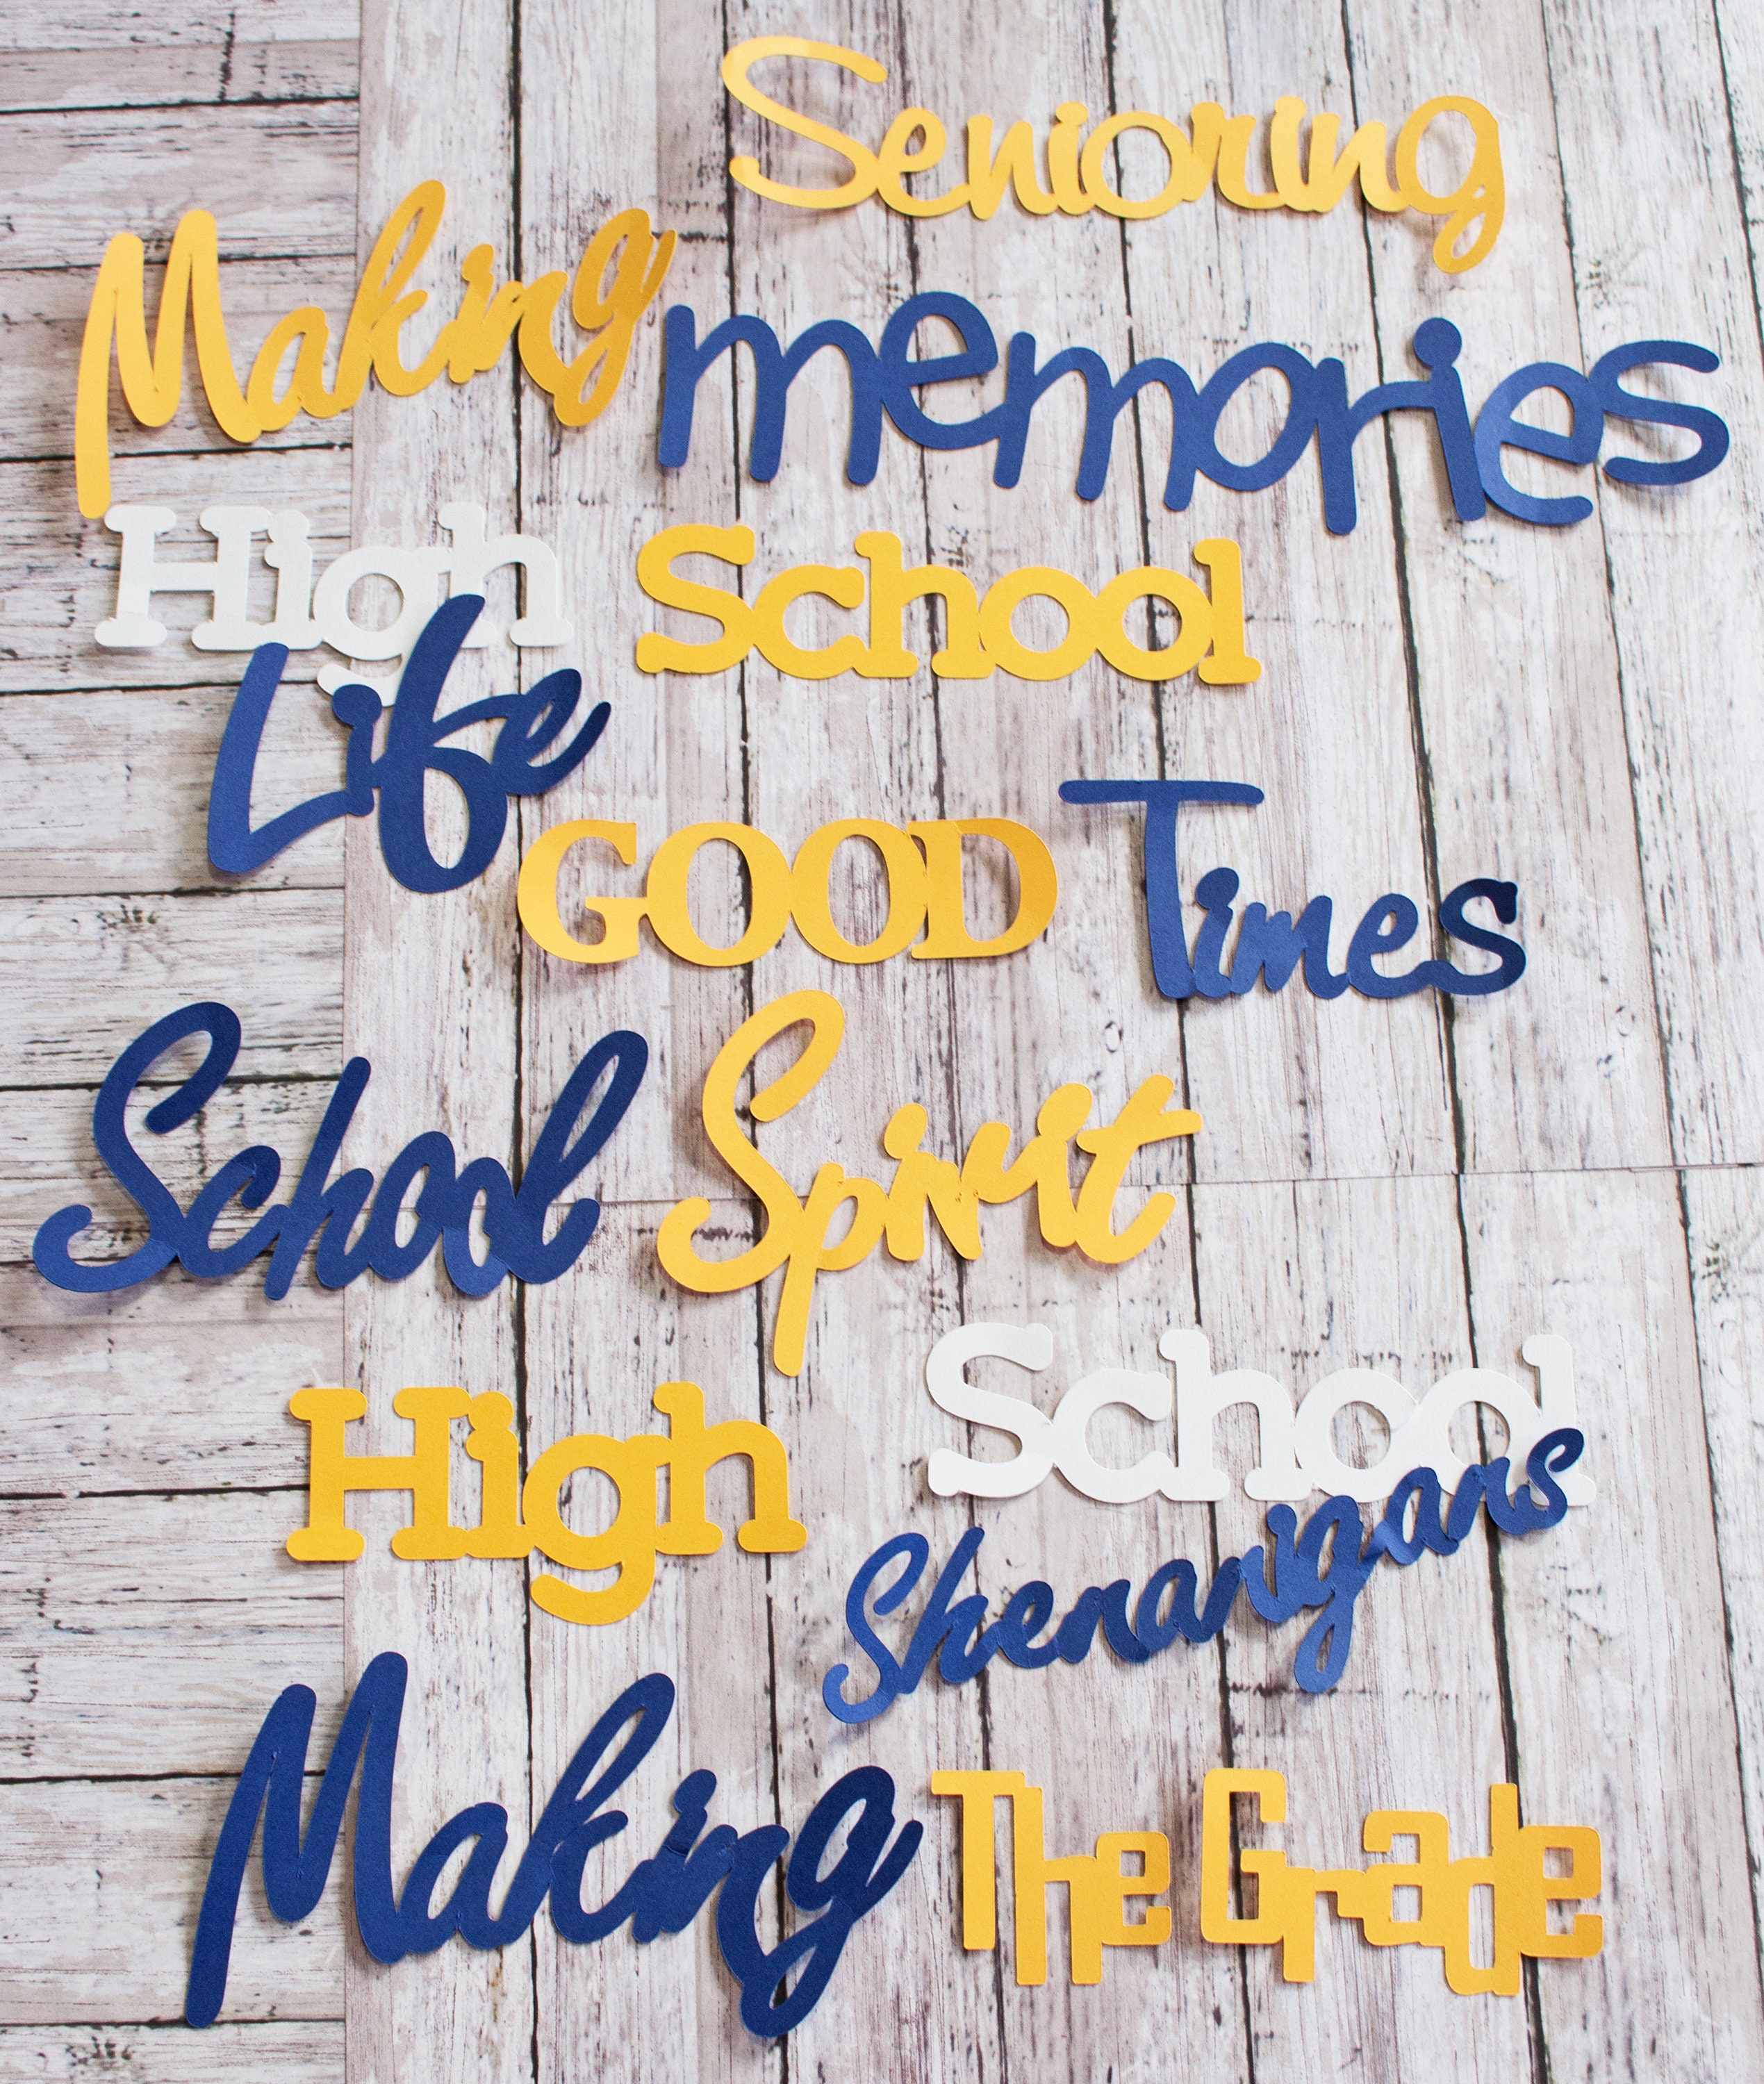 Senioring
Making memories
High School
Life
GOOD Times
School Spirit
High School
Shenanigans
Making The Grade